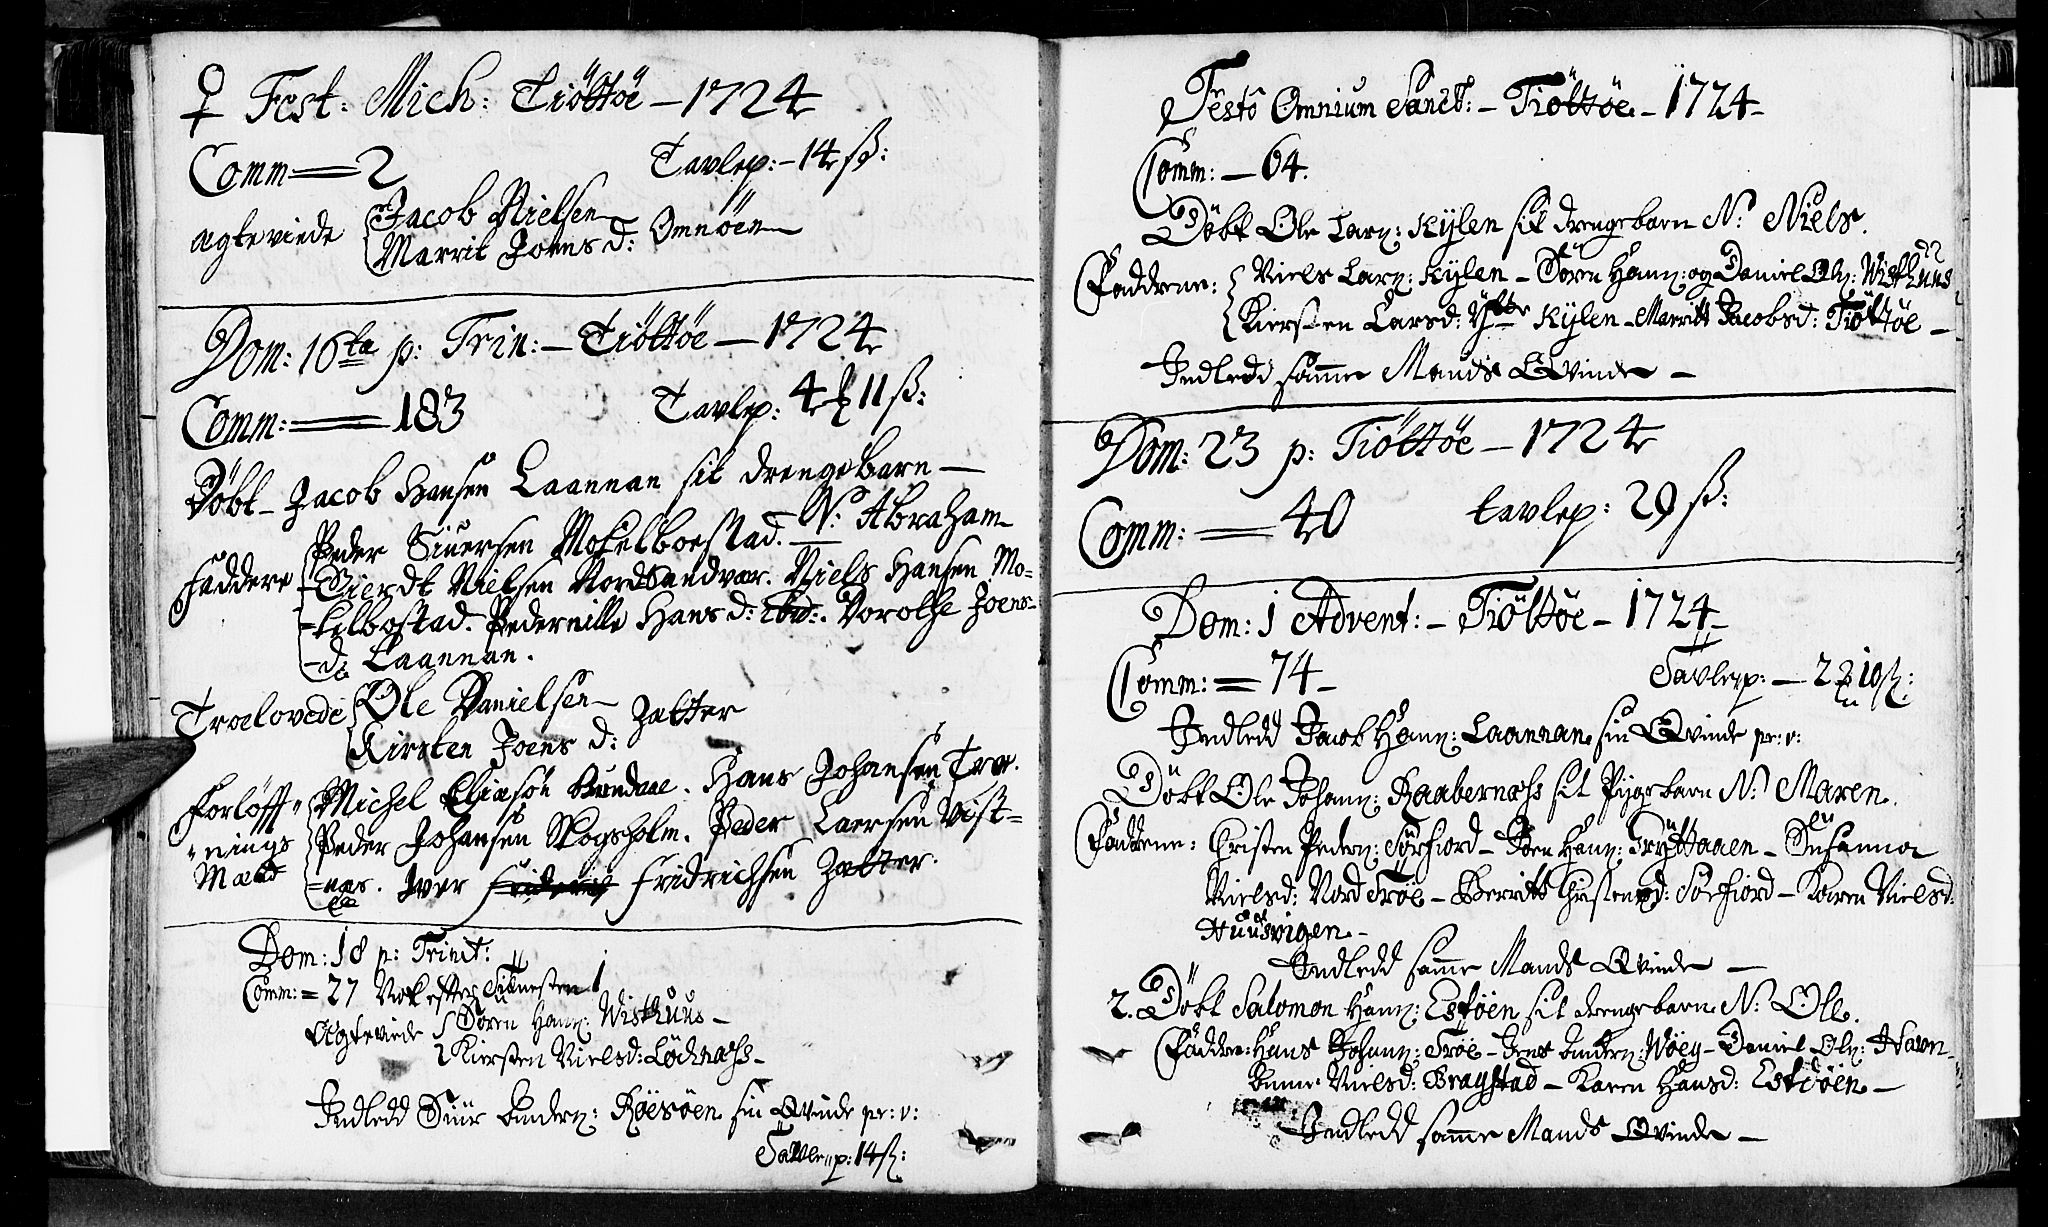 ♀ Fest: Mich: Tiöttöe – 1724
Comm = 2 Tavlep: – 14 sβ:
Ægteviede Jacob Nielsen
Marrit Joens d: Omnöen
Dom: 16ta p: Trin: – Tiöttöe – 1724
Comm: = 183 Tavlep: 4 11 sβ:
Döbt – Jacob Hansen Laannan sit drengebarn –
N: Abraham
Peder Siuersen Mokelboestad.
Faddere Sierdt Nielsen Nordsandvær. Niels Hansen Mo-
kelbostad. Pedernille Hans d: ibid:. Dorothe Joens-
d: Laannan.
Troelovede Ole Danielsen
Kirsten Joens d: Zætter
Forlöff- Michel Eliæsøn Hans Johansen Træ.
nings Peder Johansen Skogsholm. Peder Laersen Vist-
Mænd næs. Iver Fridrichsen Zætter.
Dom: 18 p: Trinit:
Comm: = 27
Ægteviede Sören Hanß: Wisthuus –
Kiersten Nielsd: Löchnæss –
Indledd Siur Anderß: Röesöen sin Qvinde pr: v:
Tavlep: 14 β:
Festo Omnium Sanct: – Tiöttöe – 1724 –
Comm: – 64.
Döbt Ole Larß: Kylen sit drengebarn N: Niels.
Faddrene: Niels Larß: Kylen – Sören Hanß: og Daniel Olß: Wisthuus
Kiersten Larsd: Kylen – Marritt Jacobsd: Tiöttöe –
Indledd samme Mands Qvinde –
Dom: 23 p: Tiöttöe – 1724
Comm: = 40 tavlep: 29 sβ:
Dom: 1 Advent: – Tiöttöe – 1724
Comm: = 74 – Tavlep: – 2 10 β:
Indledd Jacob Hanß: Laannan sin Qvinde pr: v:
Döbt Ole Johanß: Raabernæss sit Pigebarn N: Maren.
Faddrene: Christen Pederß: Sörfiord – Hanß: – Susanna
Nielsd: Nord Tröe – Berritt Christensd: Sörfiord – Karen Nielsd:
Huusvigen –
Indledd samme Mands Qvinde –
2. Döbt Salomon Hanß: Estöen sit drengebarn N: Ole.
Faddrene: Hans Johanß: Tröe – Jens Anderß: Wöey – Daniel Olß: Hawn –
Anne Nielsd: Braystad – Karen Hansd: Estöen –
Indledd samme Mands Qvinde –